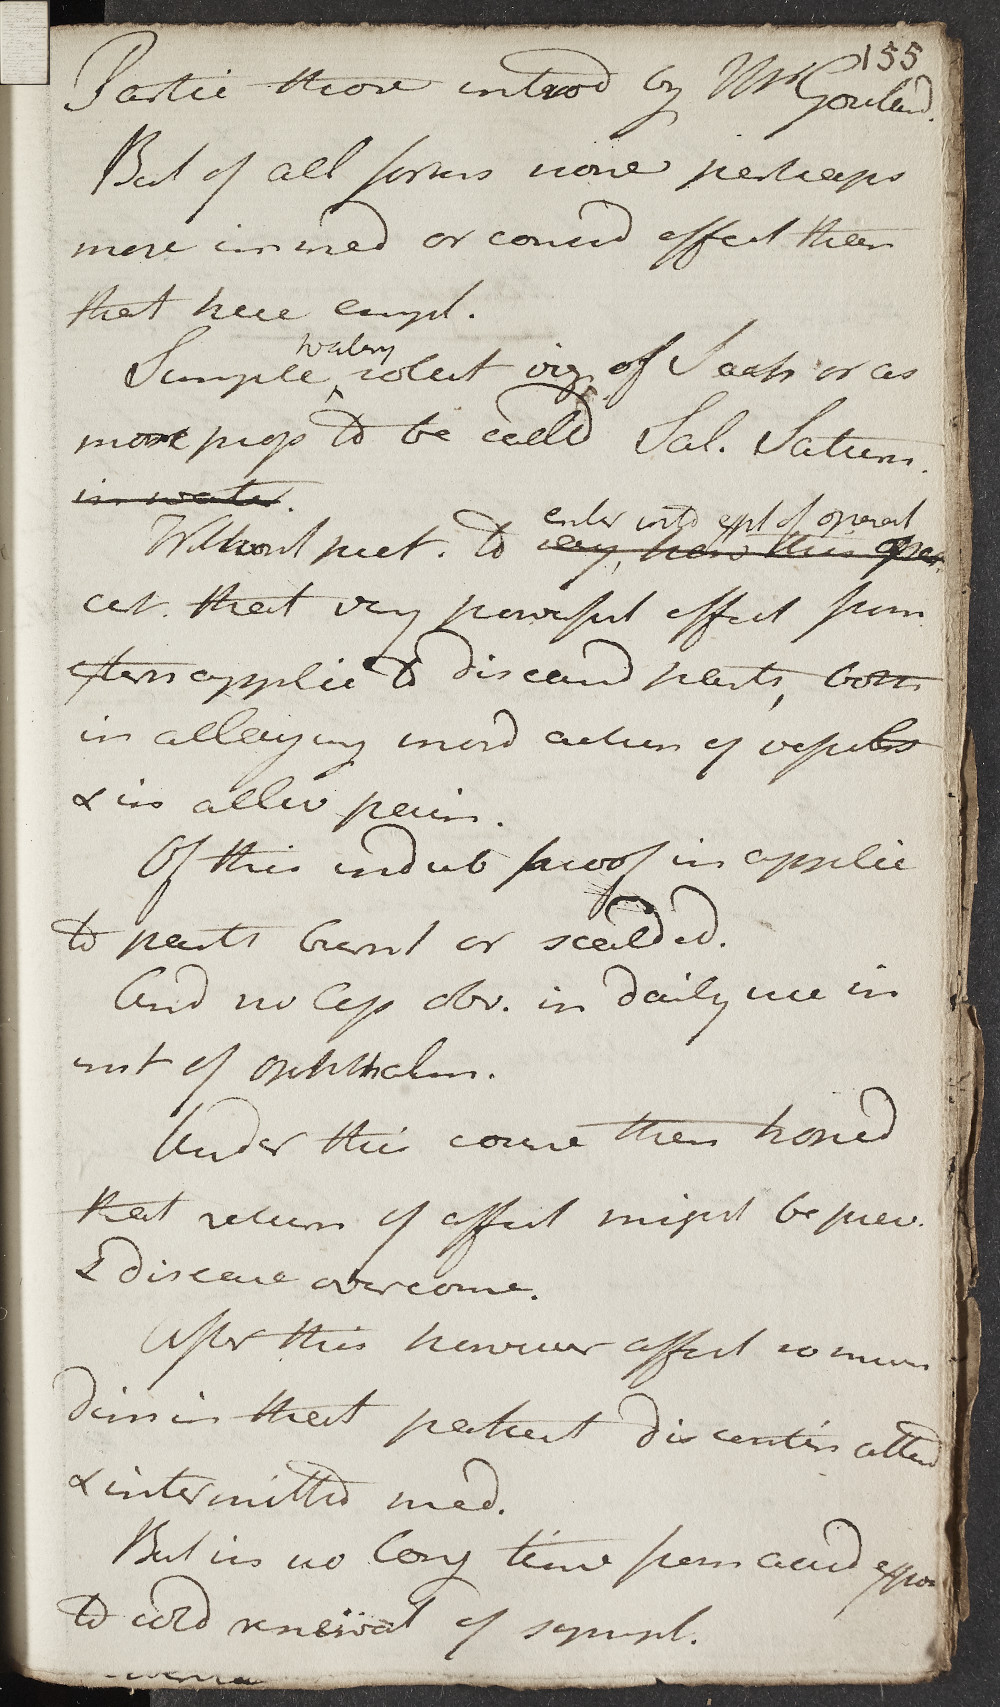 155
Partic those introd by Mr Goulard.
But of all forms none perhaps
more immed or consid effect than
that here empl.
Simple watery solut of Sach or as
more prop to be called Sal. Saturn.
in water.
Without pret. to enter into expl of operat
very, how this oper
cert. that very powerful effect from
extern applic to diseasd parts, both
in allaying morb action of vessels
& in allev pain.
Of this indub proof in applic
to parts burnt or scalded.
And no less obv. in daily use in
inst of ophthalm.
Under this course then hoped
that return of affect might be prev.
& disease overcome.
After this however affect so much
dimin that patient discontin attend
& intermitted med.
But in no long time from accid expos
to cold renewal of sympt.